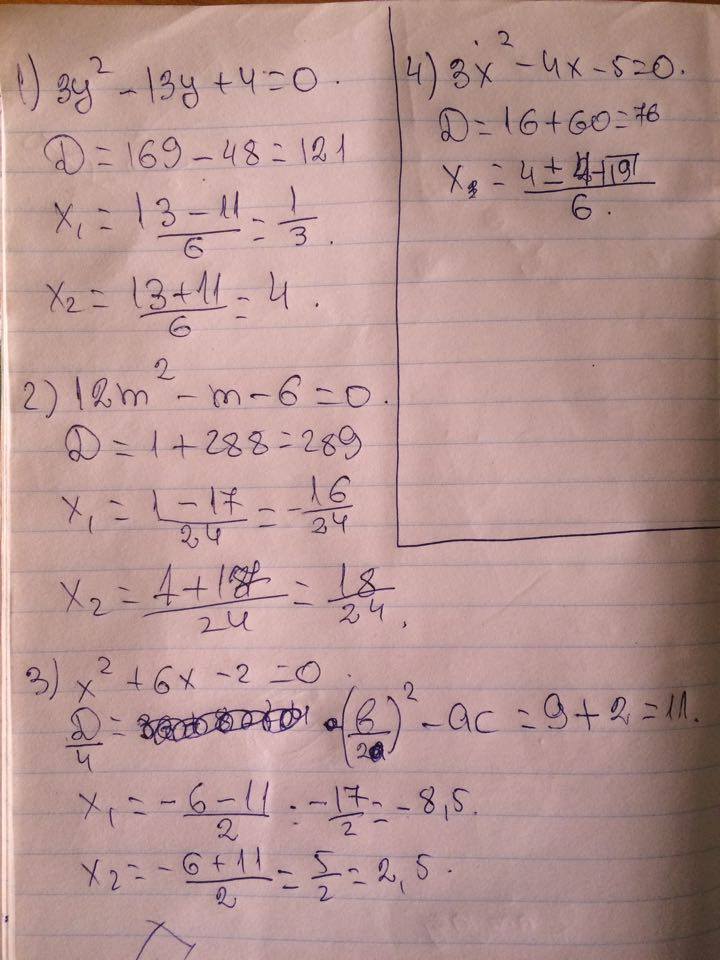 1) 3y² - 13y + 4 = 0.
D = 169 - 48 = 121
x₁ = (13 - 11)/6 = 1/3.
x₂ = (13 + 11)/6 = 4.
2) 12m² - m - 6 = 0.
D = 1 + 288 = 289
x₁ = (1 - 17)/24 = -16/24
x₂ = (1 + 17)/24 = 18/24.
3) x² + 6x - 2 = 0.
D/4 = (b/2)² - ac = 9 + 2 = 11.
x₁ = (-6 - 11)/2 = -17/2 = -8,5.
x₂ = (-6 + 11)/2 = 5/2 = 2,5.
4) 3x² - 4x - 5 = 0.
D = 16 + 60 = 76
x = (4 ± 4√19)/6.